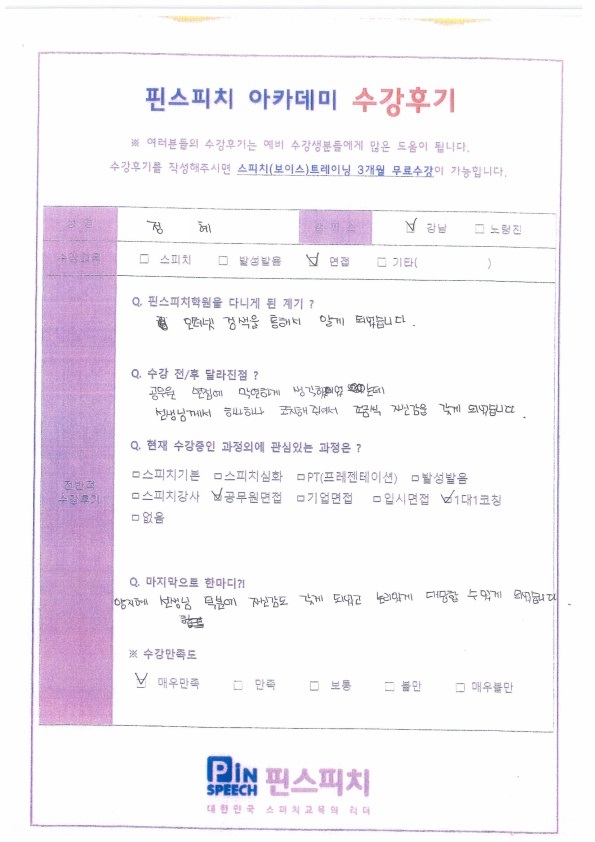 핀스피치 아카데미 수강후기
※ 여러분들의 수강후기는 예비 수강생분들에게 많은 도움이 됩니다.
수강후기를 작성해주시면 스피치(보이스)트레이닝 3개월 무료수강이 가능합니다.
성 명 정 혜 ☑ 강남 □ 노량진
수강과목 □ 스피치 □ 발성발음 ☑ 면접 □ 기타( )
Q. 핀스피치학원을 다니게 된 계기 ?
인터넷 검색을 통해서 알게 되었습니다.
Q. 수강 전/후 달라진점 ?
공무원 면접에 막연하게 생각했는데
선생님께서 하나하나 코치해 주셔서 조금씩 자신감을 갖게 되었습니다.
Q. 현재 수강중인 과정외에 관심있는 과정은 ?
전반적
수강후기
□스피치기본 □스피치심화 □PT(프레젠테이션) □발성발음
□스피치강사 ☑공무원면접 □기업면접 □입시면접 ☑1대1코칭
□없음
Q. 마지막으로 한마디?!
양지혜 선생님 덕분에 자신감도 갖게 되었고 논리있게 대답할 수 있게 되었습니다.
※ 수강만족도
☑ 매우만족 □ 만족 □ 보통 □ 불만 □ 매우불만
PiN SPEECH 핀스피치
대한민국 스피치교육의 리더